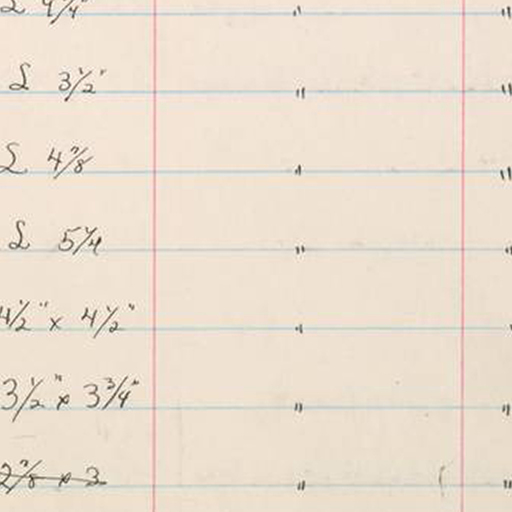 3 1/2" " "
4 7/8 " "
5 1/4 " "
4 1/2" x 4 1/2" " "
3 1/2" x 3 3/4" " "
2 7/8 x 3 " "